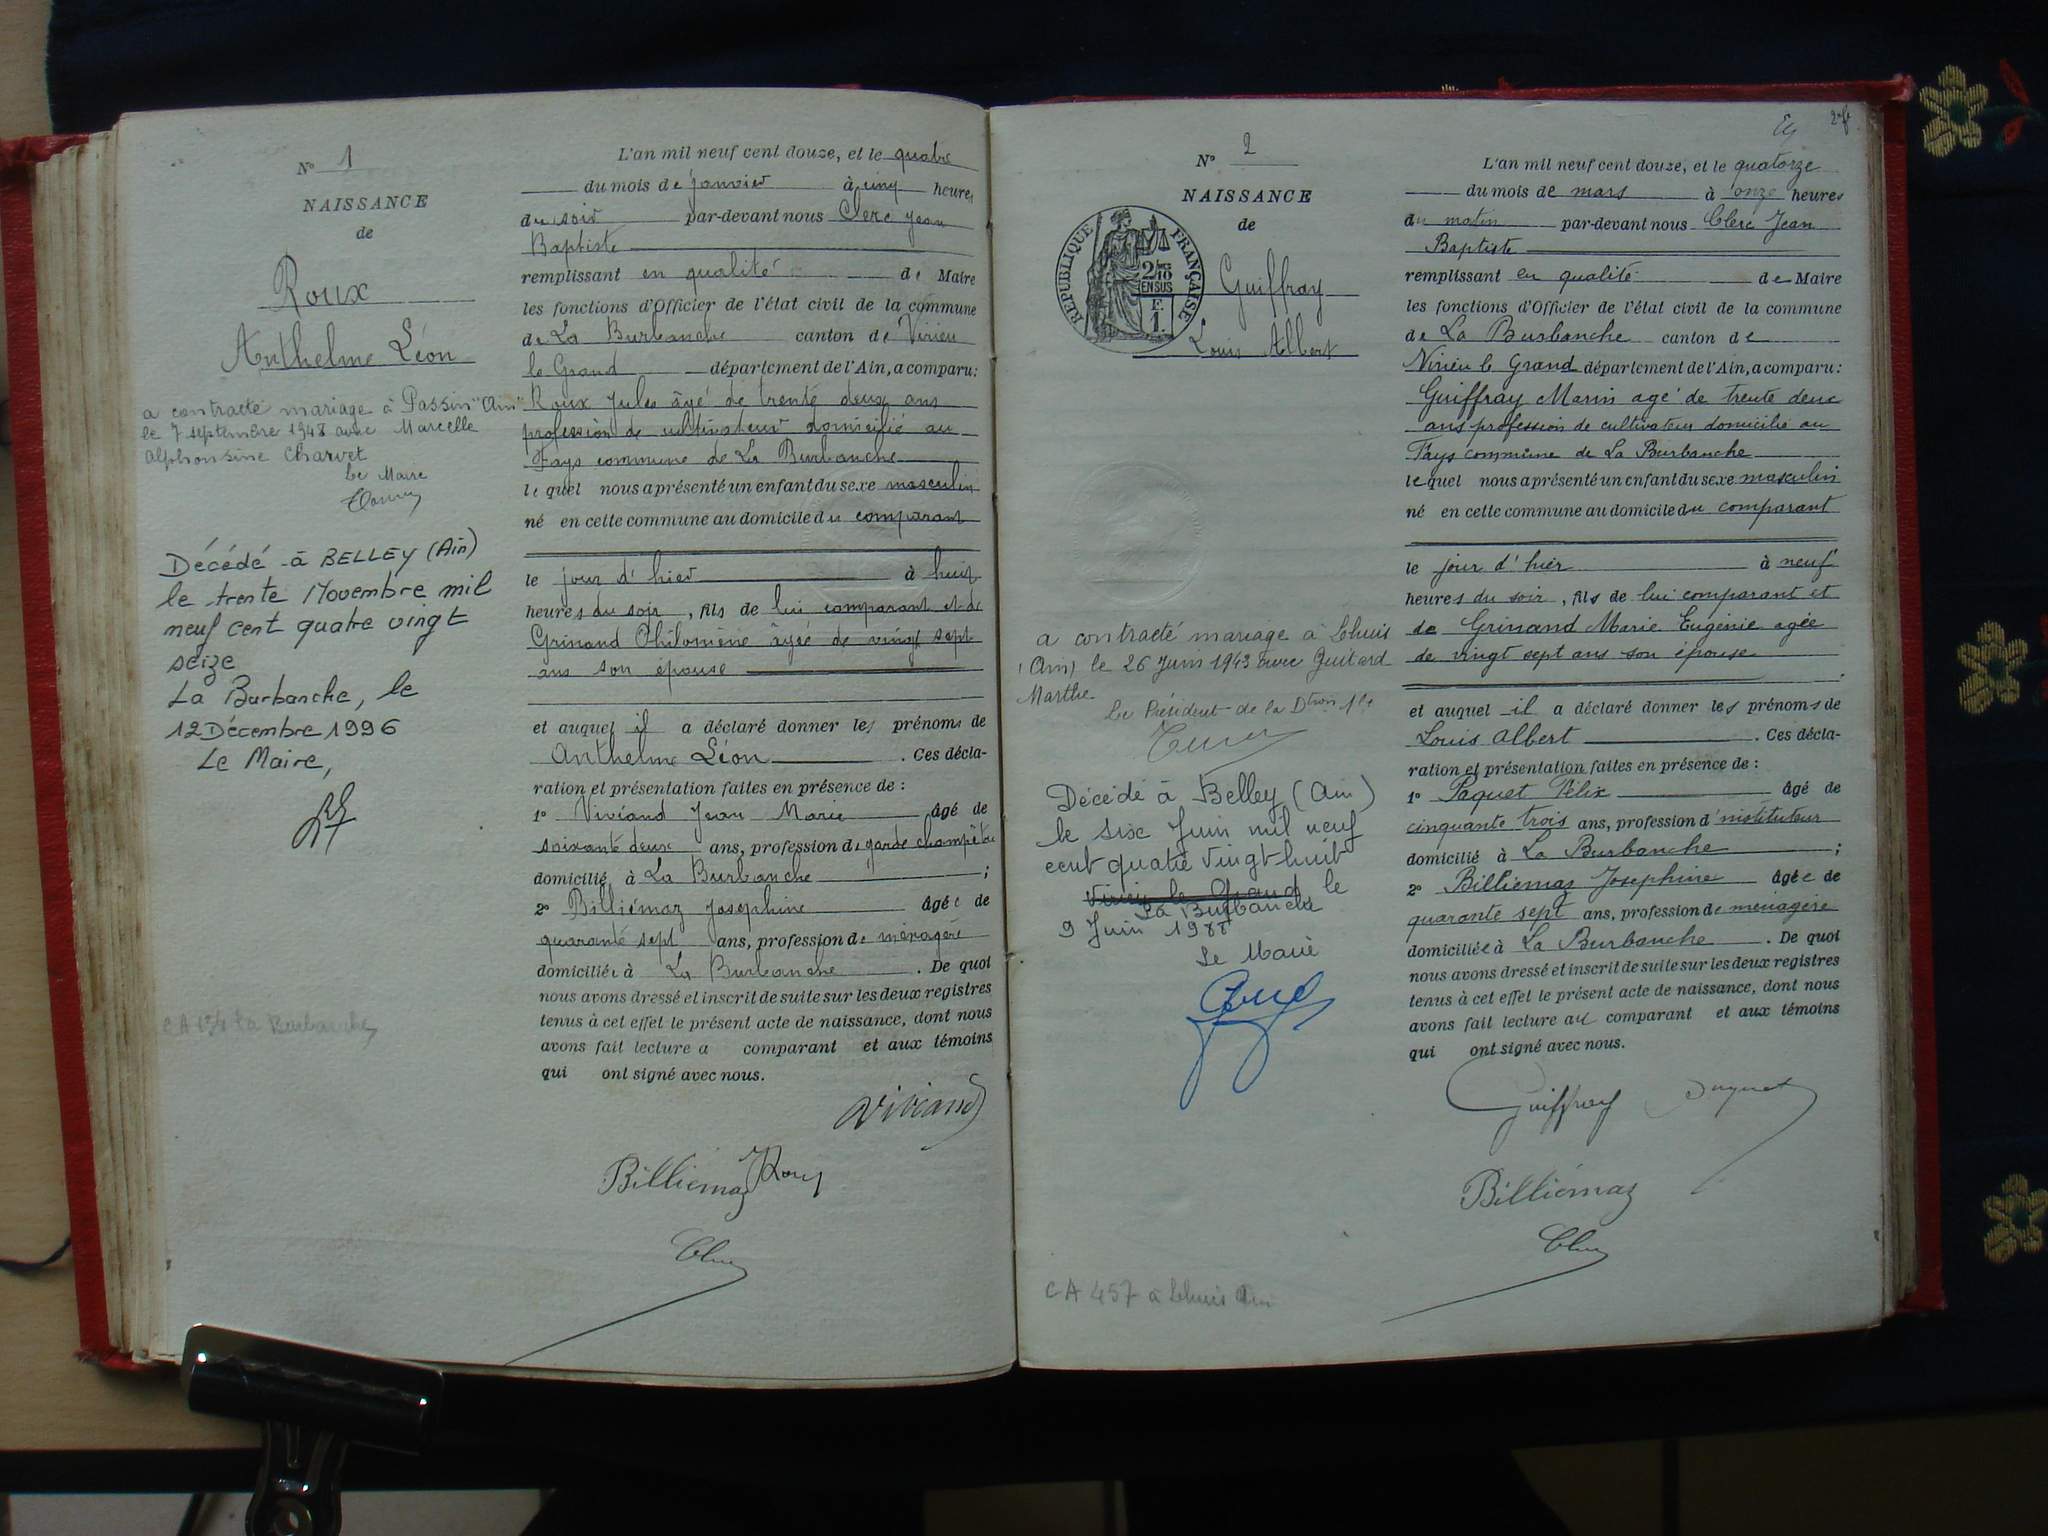 N° 1
NAISSANCE
de
Roux
Anthelme Léon
a contracté mariage à Passin "Ain"
le 7 septembre 1948 avec Marcelle
Alphonsine Charvet
Le Maire
Décédé à BELLEY (Ain)
le trente Novembre mil
neuf cent quatre vingt
seize
La Burbanche, le
12 Décembre 1996
Le Maire,
La Burbanche
L'an mil neuf cent douze, et le quatre
du mois de janvier à cinq heures
du soir par-devant nous Clerc Jean
Baptiste
remplissant en qualité de Maire
les fonctions d'Officier de l'état civil de la commune
de La Burbanche canton de Virieu
le Grand département de l'Ain, a comparu:
Roux Jules âgé de trente deux ans
profession de cultivateur domicilié au
Fays commune de La Burbanche
lequel nous a présenté un enfant du sexe masculin
né en cette commune au domicile du comparant
le jour d'hier à huit
heures du soir, fils de lui comparant et de
Grinand Philomène âgée de vingt sept
ans son épouse
et auquel il a déclaré donner les prénoms de
Anthelme Léon. Ces décla-
ration et présentation faites en présence de :
1° Viviand Jean Marie âgé de
soixante deux ans, profession de garde champêtre
domicilié à La Burbanche ;
2° Billiémaz Josephine âgée de
quarante sept ans, profession de ménagère
domiciliée à La Burbanche. De quoi
nous avons dressé et inscrit de suite sur les deux registres
tenus à cet effet le présent acte de naissance, dont nous
avons fait lecture a comparant et aux témoins
qui ont signé avec nous.
Viviand
Billiémaz JRoux
Clerc
2
N° 2
NAISSANCE
de
RÉPUBLIQUE FRANÇAISE
EN SUS
Guiffray
Louis Albert
a contracté mariage à Lhuis
(Ain) le 26 Juin 1943 avec Guitard
Marthe.
Le Président de la Dtion Sle
Décédé à Belley (Ain)
le six Juin mil neuf
cent quatre vingt-huit
Virieu le Grand, le
La Burbanche
9 Juin 1988
Le Maire
CA 457 à Lhuis Ain
L'an mil neuf cent douze, et le quatorze
du mois de mars à onze heures
du matin par-devant nous Clerc Jean
Baptiste
remplissant en qualité de Maire
les fonctions d'Officier de l'état civil de la commune
de La Burbanche canton de
Virieu le Grand département de l'Ain, a comparu:
Guiffray Marin agé de trente deux
ans profession de cultivateur domicilié au
Fays commune de La Burbanche
lequel nous a présenté un enfant du sexe masculin
né en cette commune au domicile du comparant
le jour d'hier à neuf
heures du soir, fils de lui comparant et
de Grinand Marie Eugénie agée
de vingt sept ans son épouse
et auquel il a déclaré donner les prénoms de
Louis Albert. Ces décla-
ration et présentation faites en présence de :
1° Paquet Félix âgé de
cinquante trois ans, profession d'instituteur
domicilié à La Burbanche ;
2° Billiemaz Josephine âgée de
quarante sept ans, profession de ménagère
domiciliée à La Burbanche. De quoi
nous avons dressé et inscrit de suite sur les deux registres
tenus à cet effet le présent acte de naissance, dont nous
avons fait lecture au comparant et aux témoins
qui ont signé avec nous.
Guiffray Paquet
Billiémaz
Clerc